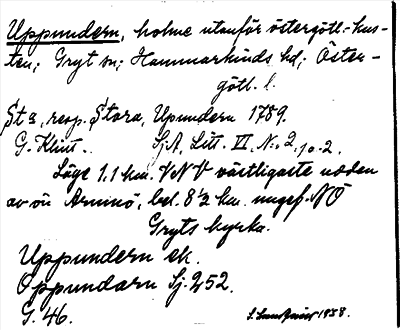 Uppundern, holme utanför östergötl.-kus-
ten; Gryt sn; Hammarkinds hd; Öster-
götl. l.
St a, resp. Stora, Upundern 1789.
G. Klint.. SjA, Litt. VI, N:o 2, 10. 2.
Läge 1.1 km. VNV västligaste udden
av ön Armnö, bel. 8 1/2 km. ungef. NÖ
Gryts kyrka.
Uppundern ek.
Oppundarn Sj. 252.
G. 46.
1938.